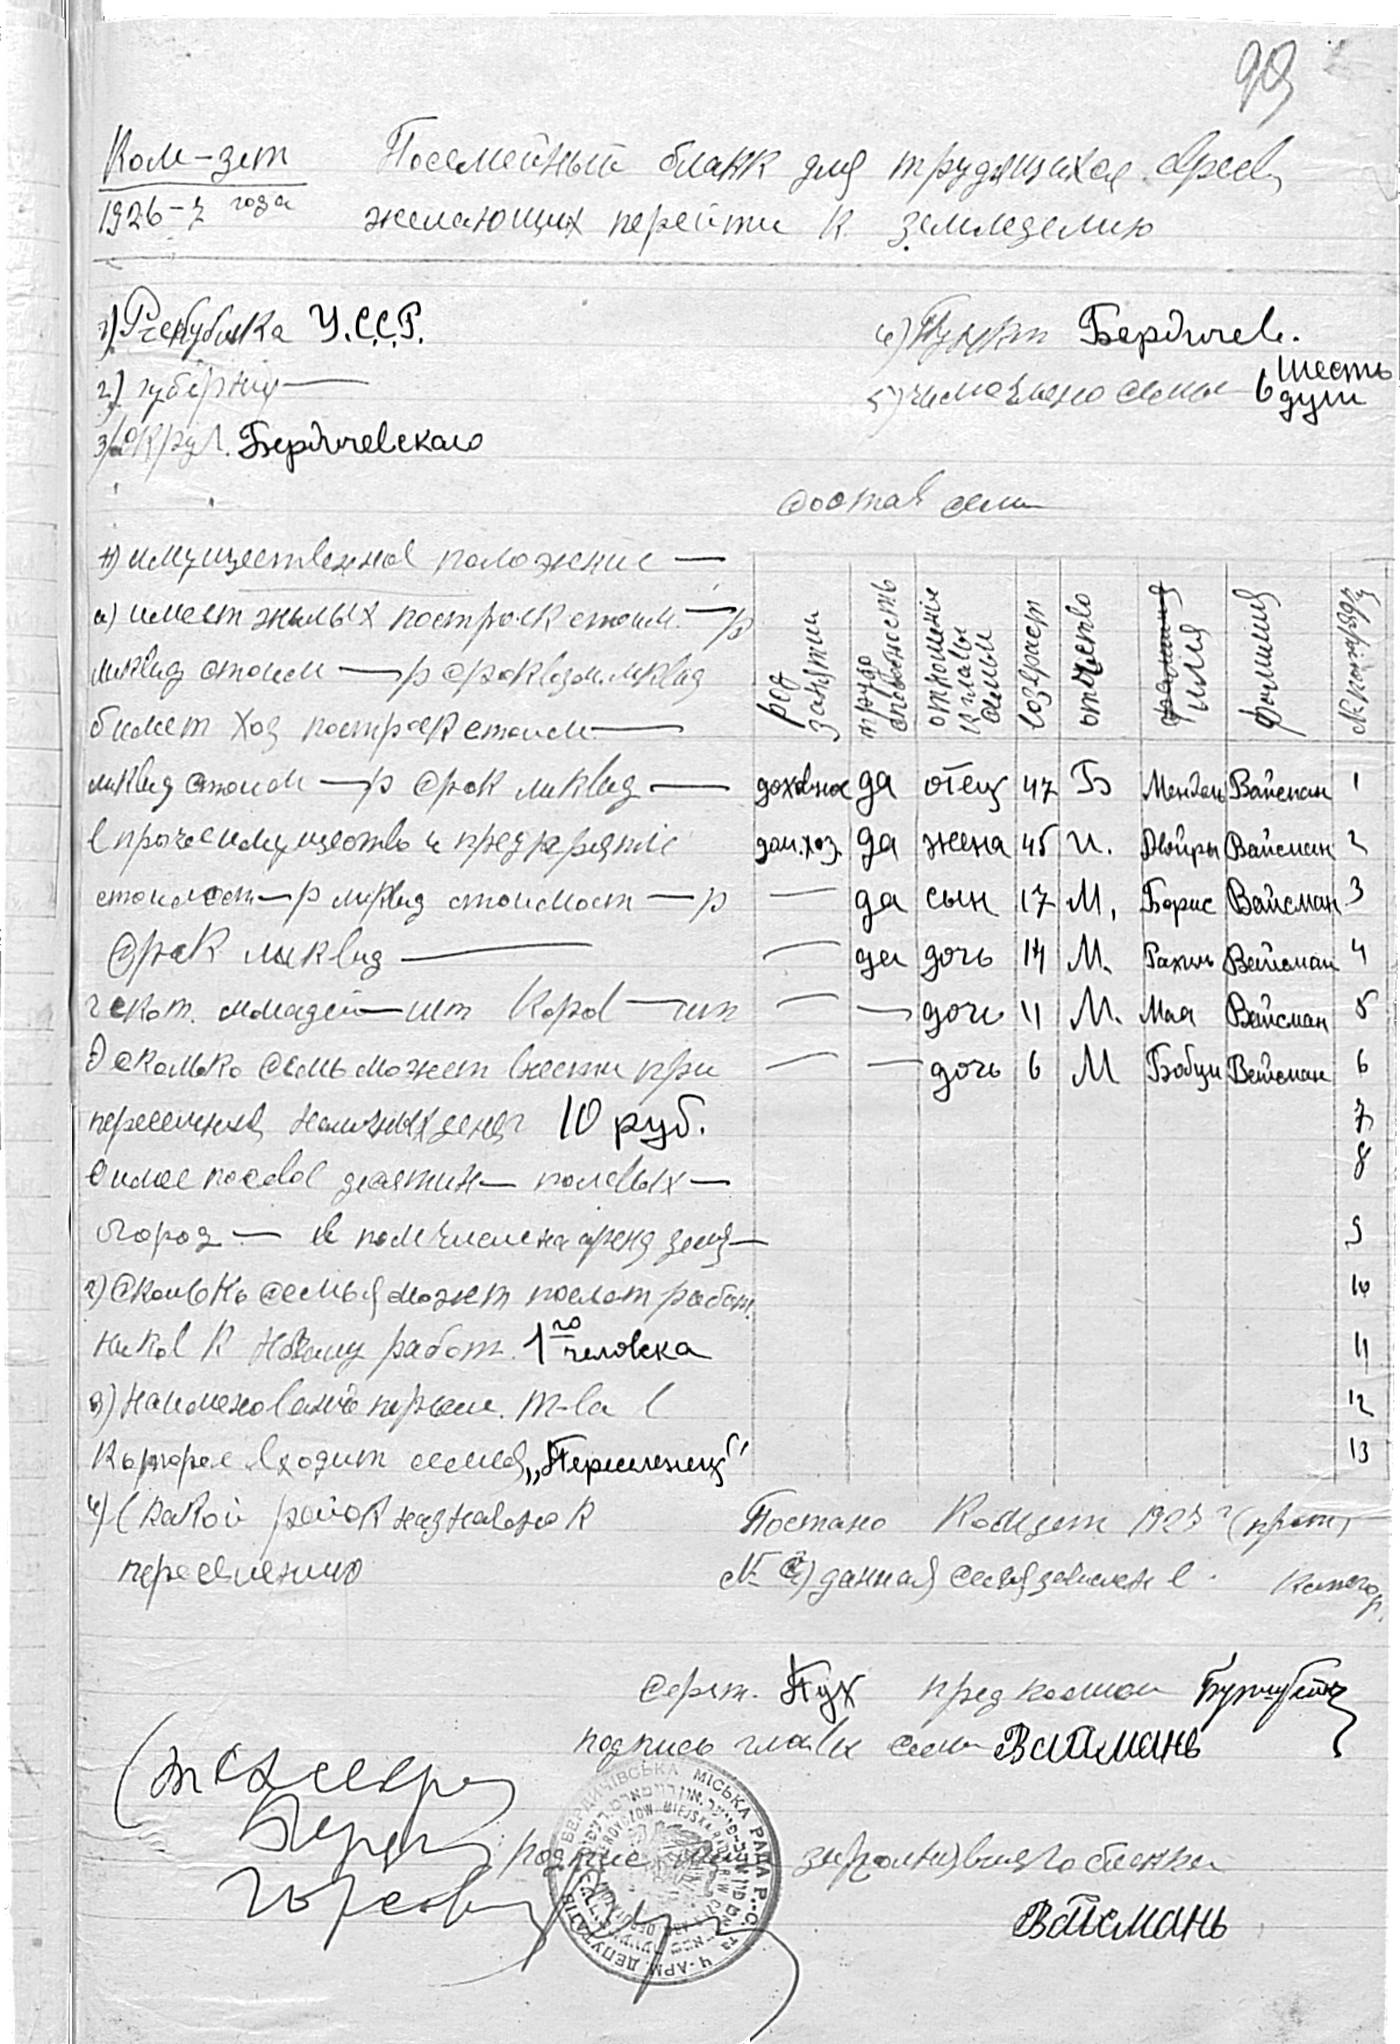 99
Ком-зет
1926-7 года
Посемейный бланк для трудящихся евреев,
желающих перейти к земледелию
1) Республика У.С.С.Р.
4) Пункт Бердичев.
2) губерния —
5) число членов семьи 6 шесть душ
3) Округ. Бердичевского
состав семи
имущественное положение —
род занятии трудоспособность отношение к главы семьи возраст отчество имя фамилия № по порядку
а) имеет жилых построек стоим. — р
ликвид стоим — р срок ликвид
б имеет хоз построек стоим —
ликвид стоим — р срок ликвид —
да отец 47 Б Мендель Вайсман 1
в прочее имущество и предприятие
дом.хоз. да жена 45 И. Двойра Вайсман 2
стоимост — р ликвид стоимост — р
— да сын 17 М. Борис Вайсман 3
срок ликвид —
— да дочь 14 М. Рахиль Вайсман 4
г скот. лошадей — шт коров — шт
— — дочь 11 М. Мая Вайсман 5
д сколько семь может внести при
— — дочь 6 М Бобци Вайсман 6
переселения наличных денег 10 руб.
7
8
е имее посевов десятин — полевых —
огород — в том числе на аренд земл —
9
г) сколько семья может послат работ
10
ников к новому работ. 1го человека
11
д) наименование пересел. т-ва в
12
которое входит семья „Переселенец"
13
ч) в какой район назначено к
переселению
Постано Комзет 192 г (прот)
№ ) данная семья зачислен в . категор.
серт. Пух пред комис
подпись главы семи Вайсмань
БЕРДИЧІВСЬКА МІСЬКА РАДА Р.-С. та Ч.-АРМ. ДЕПУТАТІВ
подпис заполнявшего бланка
Вайсмань